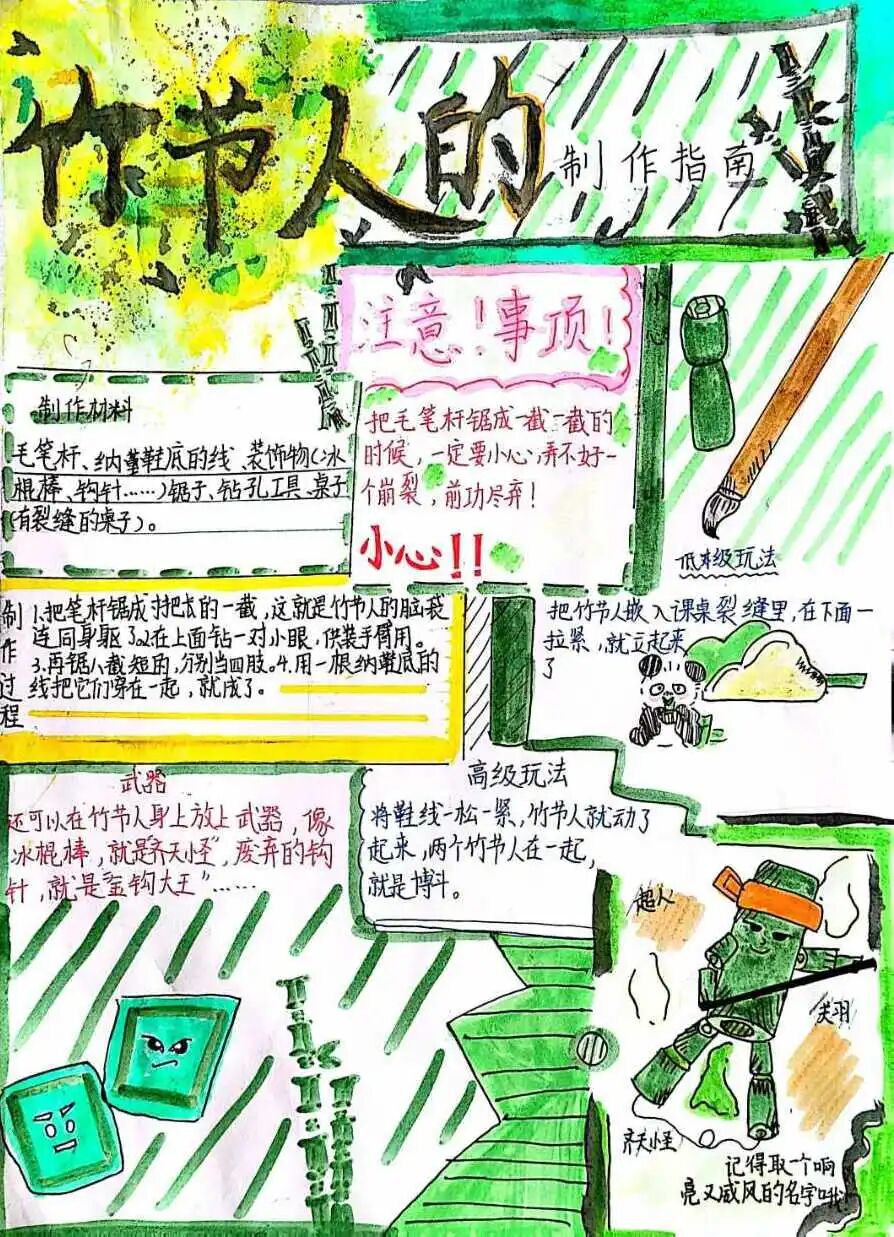 竹节人的
制作指南
注意！事项！
把毛笔杆锯成一截一截的
时候，一定要小心，弄不好一
个崩裂，前功尽弃！
小心！！
制作材料
毛笔杆、纳鞋底的线、装饰物（冰
棍棒、钩针……）锯子、钻孔工具、桌子
（有裂缝的桌子）。
低级玩法
把竹节人嵌入课桌裂缝里，在下面一
拉紧，就立起来
了
制作过程
1.把笔杆锯成寸把长的一截，这就是竹节人的脑袋
连同身驱了2.在上面钻一对小眼，供装手臂用。
3.再锯八截短的，分别当四肢。4.用一根纳鞋底的
线把它们穿在一起，就成了。
武器
还可以在竹节人身上放上武器，像
冰棍棒，就是“齐天小怪”，废弃的钩
针，就是“金钩大王”……
高级玩法
将鞋线一松一紧，竹节人就动了
起来，两个竹节人在一起，
就是搏斗。
超人
关羽
齐天小怪
记得取一个响
亮又威风的名字哦